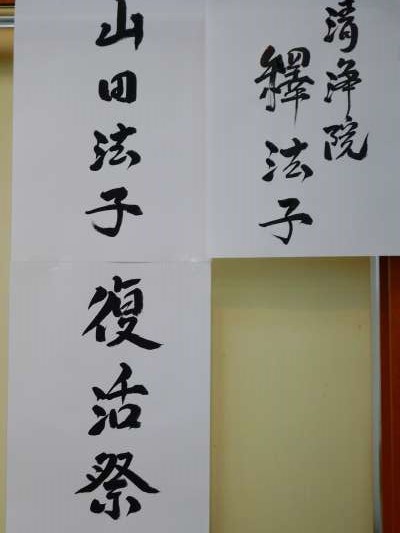 清浄院
釋法子
山田法子
復活祭